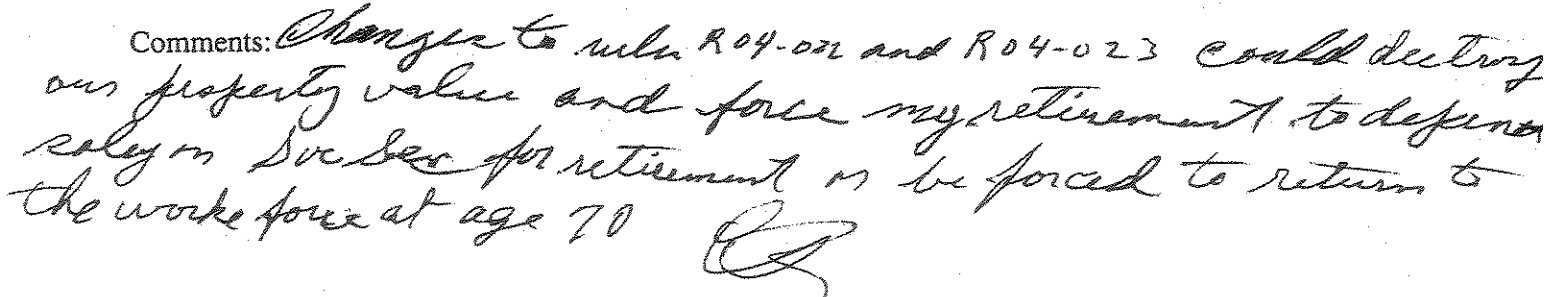 Comments: Changes to rules R04-022 and R04-023 could destroy
our property value and force my retirement to depend
soley on Soc Sec for retirement or be forced to return to
the worke force at age 70